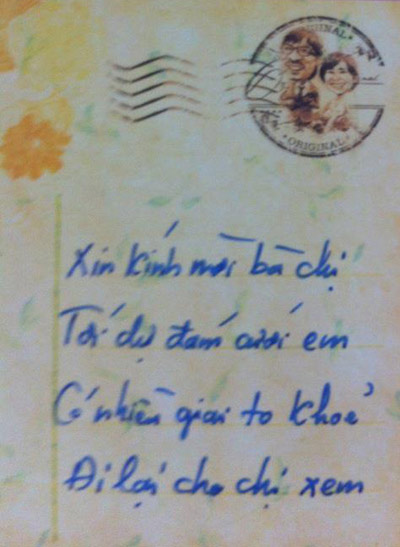 ORIGINAL
ORIGINAL
Xin kính mời bà chị
Tới dự đám cưới em
Có nhiều giai to khoẻ
Đi lại cho chị xem